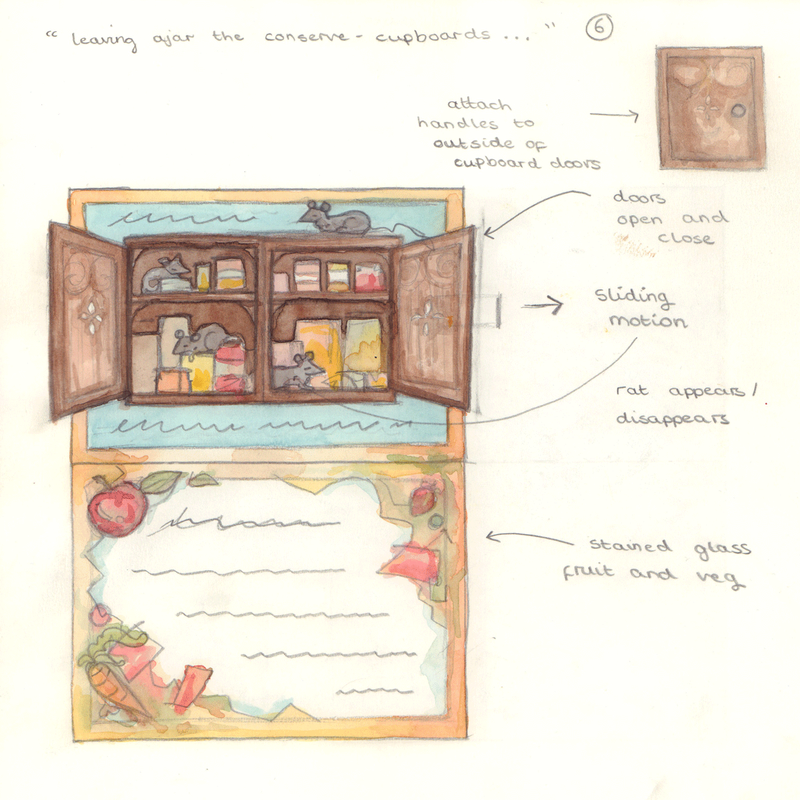 “ leaving ajar the conserve - cupboards ... ”
6
attach
handles to
outside of
cupboard doors
doors
open and
close
sliding
motion
rat appears /
disappears
stained glass
fruit and veg